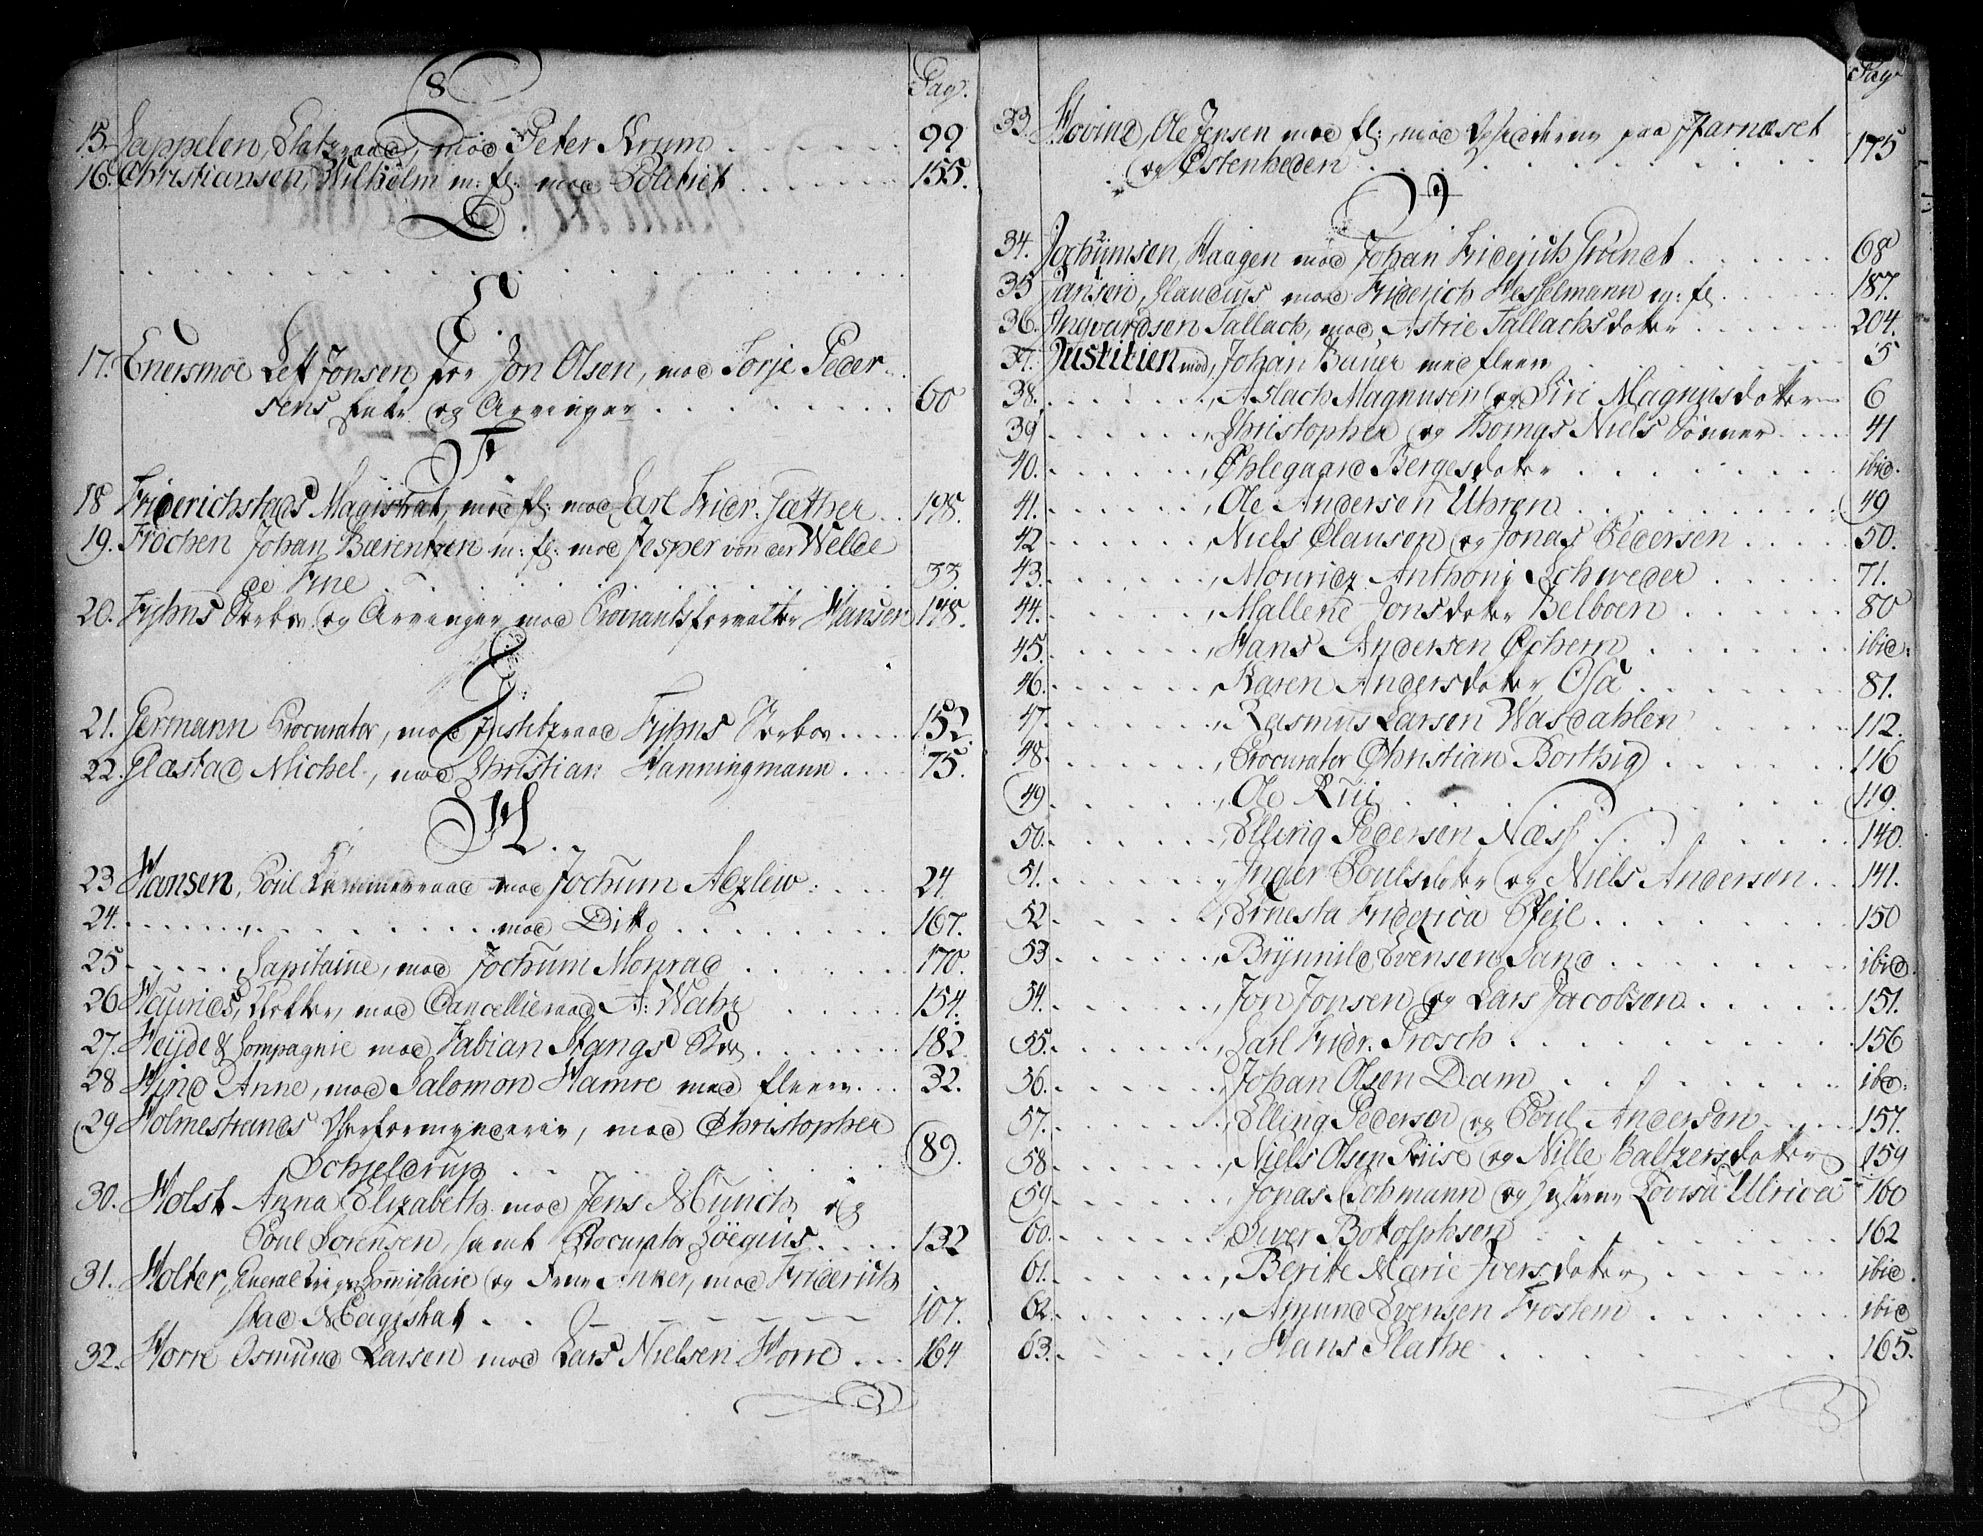 8
Pag.
15. Cappelen, Etatzraad, mod Peter Krum . . . . . 99
16. Christiansen, Wilhelm m: fl: mod Politiet . . . . . 155.
D.
E.
17. Enersmoe Lett Jonsen for Jon Olsen, mod Torje Peder-
sens Enke og Arvinger . . . . . 60
F
18 Friderichstads Magistrat, med fl: mod Carl Fridr. Gether . . 198.
19. Frochen Johan Bærentzen m: fl: mod Jesper von der Welde
de Fine . . . . . 33.
20. Fyhns Sterboe og Arvinger mod Proviantsforvalter Hansen 148.
G:
21. Germann Procurator, mod Justitzraad Fyhns Sterboe . . . . 152.
22. Glæstad Michel, mod Christian Hanningmann . . . . 75.
H.
23 Hansen, Poul Kammerraad mod Jochum Aezlew . . . . 24.
24. . . . . . mod Ditto . . . . . 167.
25 . . . . . Capitaine, mod Jochum Monrad . . . . . 170.
26 Haurids, Petter, mod Cancellieraad A: Wahz . . . . . 154.
27. Heyde & Compagnie mod Fabian Stangs Boe . . . . . 182
28 Hind Anne, mod Salomon Hamre med fleere . . . 32.
29 Holmestrands Oberformynderie, mod Christopher
Schjeldrup . . . . . 89.
30. Holst Anna Elizabeth mod Jens Munch og
Poul Sørensen, samt Procurator Zöegius . . . . 132
31. Holter, General Krigs Commissaire og Frue Anker, mod Friderich
stad Magistrat . . . . . 107.
32. Horre Osmund Larsen mod Lars Nielsen Horre . . . 164
Pag.
33. Hovind, Ole Jensen med fl:, mod Opsidderne paa Jarnæset
og Østenheden . . . . . 175
J
34. Jochumsen, Haagen mod Johan Friderich Gründt . . . . . 68
35 Jansen, Claudius mod Friderich Hesselmann m: fl. . . . . 187.
36. Ingvardsen Tallach, mod Astrie Tallachsdatter . . . . . 204.
37. Justitien mod, Johan Bauer med fleere . . . . . 5
38. . . . . . , Aslach Magnusen og Siri Magnusdatter 6
39 . . . . . , Christopher og Thomas Niels Sønner . . . . 41
40. . . . . . , Øhlegaard Bergesdatter . . . . . ibid.
41. . . . . . , Ole Andersen Uhren . . . . . 49
42 . . . . . , Niels Clausen og Jonas Pedersen . . . . . 50.
43. . . . . . , Mouridz Anthoni Schweder . . . . . 71.
44. . . . . . , Mallene Jonsdatter Belboen . . . . . 80
45. . . . . . , Hans Andersen Øchern . . . . . ibid:
46. . . . . . , Karen Andersdatter Osa . . . . . 81.
47. . . . . . , Rasmus Larsen Wasdahlen . . . . . 112.
48. . . . . . , Procurator Christian Borthig . . . . . 116
49 . . . . . , Ole Rui . . . . . 119.
50. . . . . . , Elling Pedersen Næss . . . . . 140.
51. . . . . . , Inger Poulsdatter og Niels Andersen . . 141.
52 . . . . . , Ernesta Friderica Pfeil . . . . . 150
53 . . . . . , Brynnild Evensen Sand . . . . . ibid.
54. . . . . . , Jon Jonsen og Lars Jacobsen . . . . . 151.
55. . . . . . , Carl Fridr. Prosch . . . . . 156
56. . . . . . , Johan Olsen Dam . . . . . ibd:
57. . . . . . , Elling Pedersen og Poul Andersen . . . . 157.
58. . . . . . , Niels Olsen Friise og Nille Baltzersdatter 159
59. . . . . . , Jonas Bohmann og Hustrue Lovisa Ulrica 160
60. . . . . . , Siver Botolphsen . . . . . 162
61. . . . . . , Berite Marie Iversdatter . . . . . ibid.
62. . . . . . , Amund Evensen Frostem . . . . . ibid
63. . . . . . , Hans Plathe . . . . . 165.